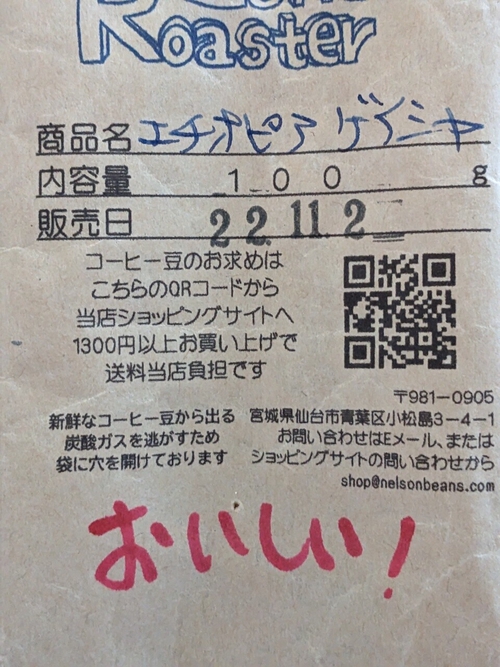 Roaster
商品名 エチオピア ゲイシャ
内容量 100 g
販売日 22.11.2
コーヒー豆のお求めは
こちらのQRコードから
当店ショッピングサイトへ
1300円以上お買い上げで
送料当店負担です
新鮮なコーヒー豆から出る
炭酸ガスを逃がすため
袋に穴を開けております
〒981-0905
宮城県仙台市青葉区小松島3-4-1
お問い合わせはEメール、または
ショッピングサイトの問い合わせから
shop@nelsonbeans.com
おいしい!